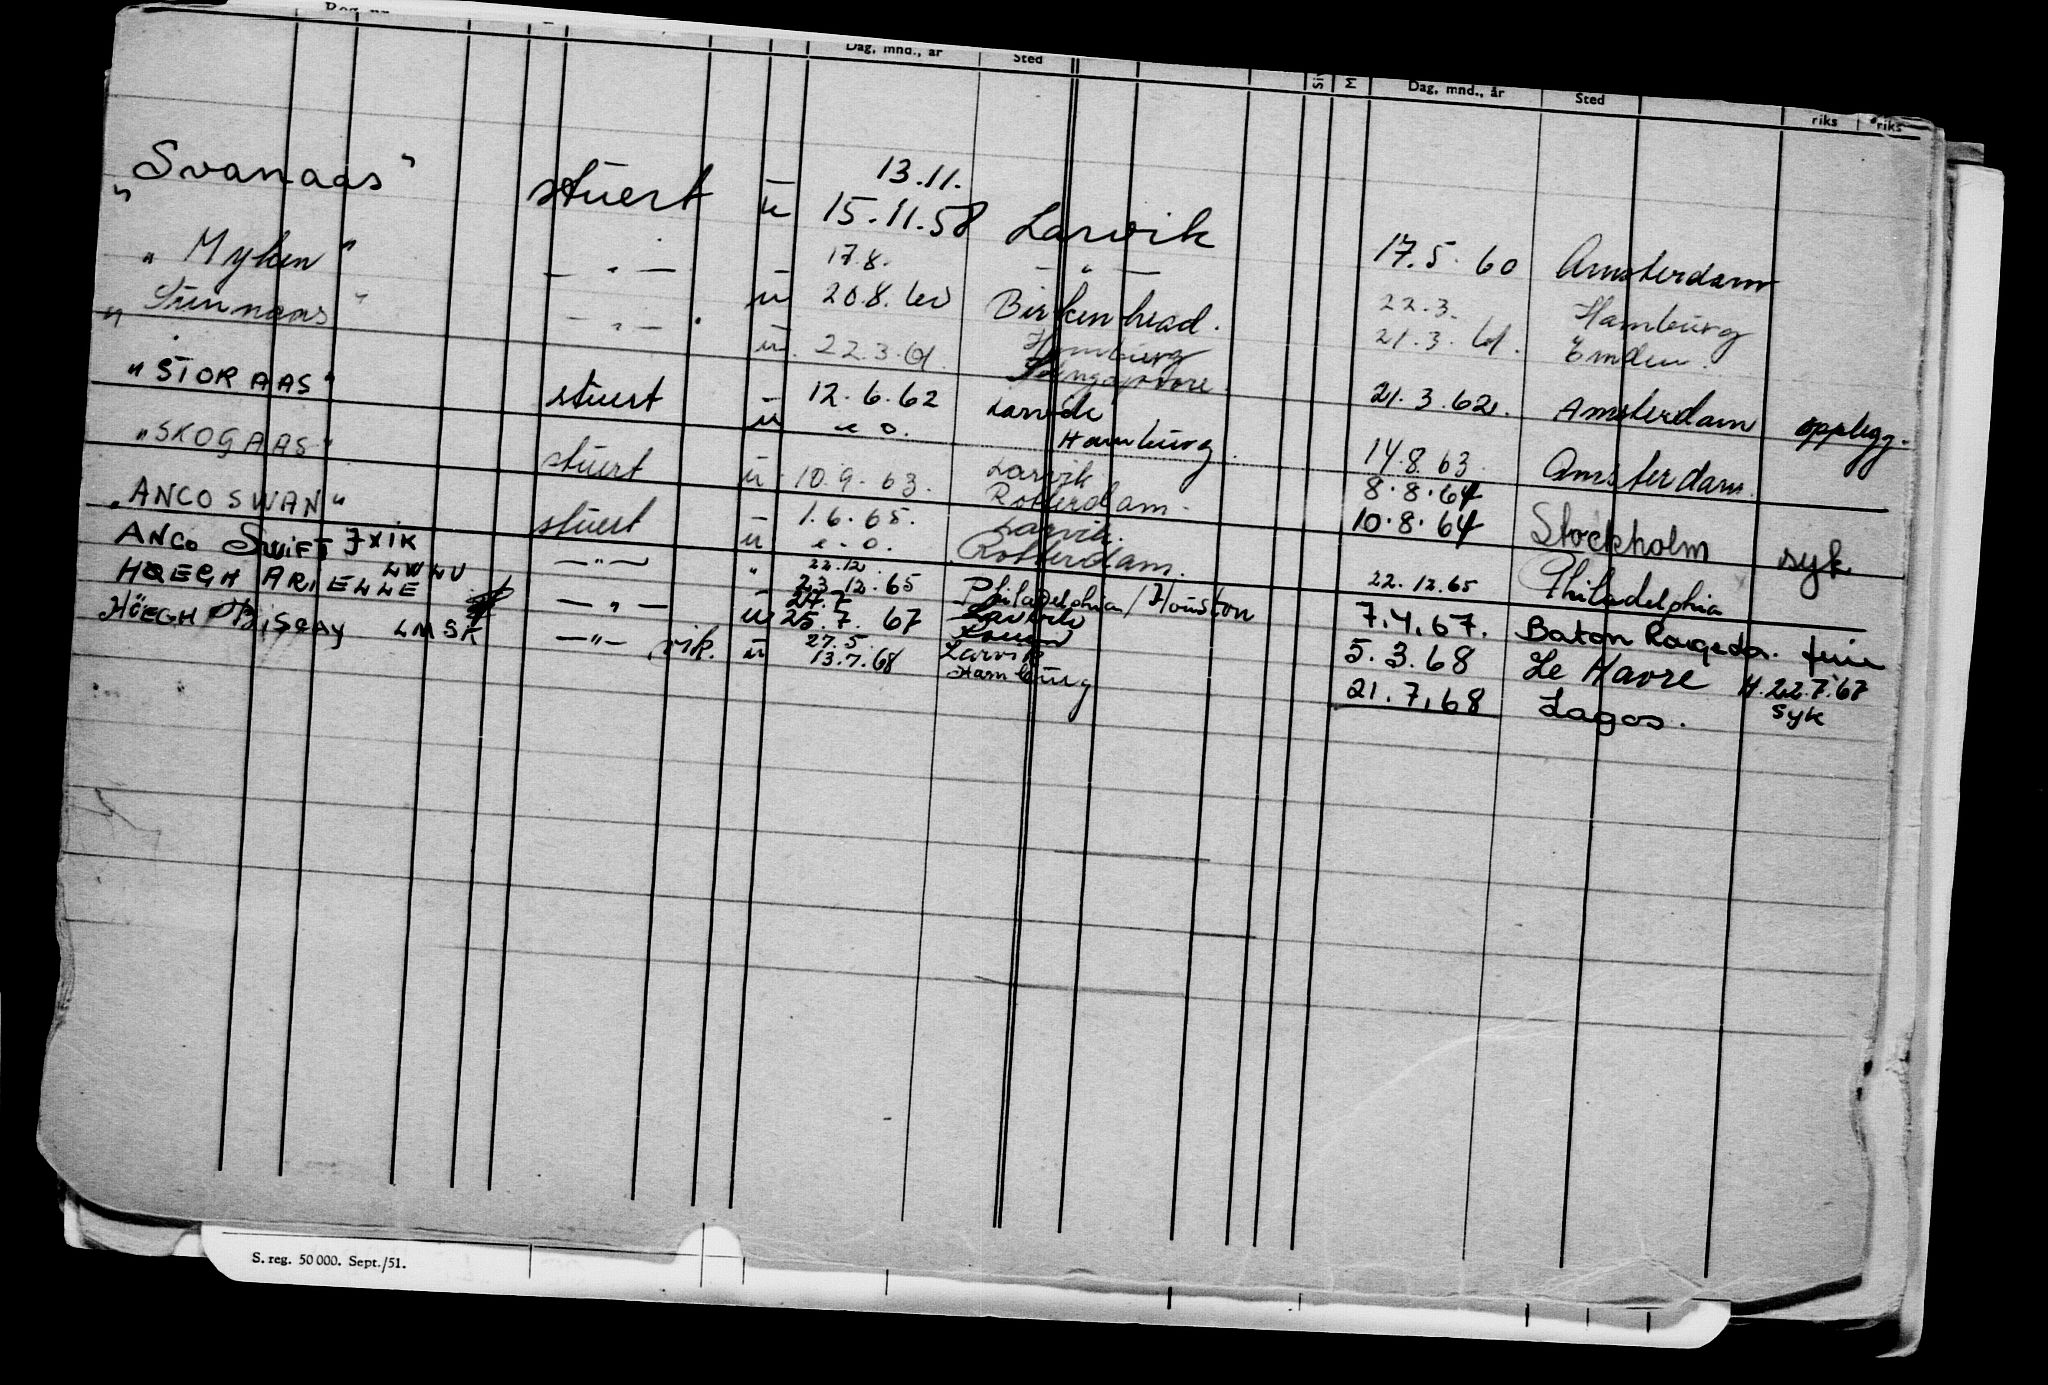 Dag, mnd., år Sted Dag, mnd., år Sted riks riks
13.11.
"Svanaas" stuert u 15.11.58 Larvik 17.5.60 Amsterdam
17.8. — " — 22.3. Hamburg
"Myken" — " — u 20.8. Birkenhead. 21.3.61. Emden.
Hamburg
" — " — u. 22.3.61. 21.3.62. Amsterdam opplegg.
"STORAAS" stuert 12.6.62 Larvik
u e o. Hamburg. 14.8.63. Amsterdam.
"SKOGAAS" stuert u 10.9.63. Larvik 8.8.64
Rotterdam. 10.8.64 Stockholm syk
"ANCO SWAN" stuert 1.6.65. Larvik.
u e.o. Rotterdam. 22.12.65 Philadelphia
ANCO SWIFT JXIK — " — " 22.12.
23.12.65 Philadelphia/Houston 7.4.67. Baton Rouge
HØEGH ARIELLE LWLU — " — u 25.7.67 5.3.68 Le Havre H.22.7.67
syk
HÖEGH BISCAY LMSK — " — vik. u 27.5. Larvik
13.7.68 Hamburg 21.7.68 Lagos.
S. reg. 50 000. Sept./51.